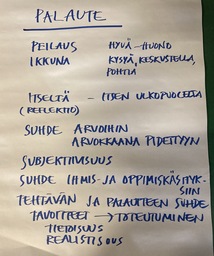 PALAUTE
PEILAUS HYVÄ - HUONO
IKKUNA KYSYÄ, KESKUSTELLA,
POHTIA
ITSELTÄ - ITSEN ULKOPUOLELTA
(REFLEKTIO)
SUHDE ARVOIHIN
ARVOKKAANA PIDETTYYN
SUBJEKTIIVISUUS
SUHDE IHMIS- JA OPPIMISKÄSITYK-
SIIN
TEHTÄVÄN JA PALAUTTEEN SUHDE
TAVOITTEET → TOTEUTUMINEN
TIETOISUUS
REALISTISUUS